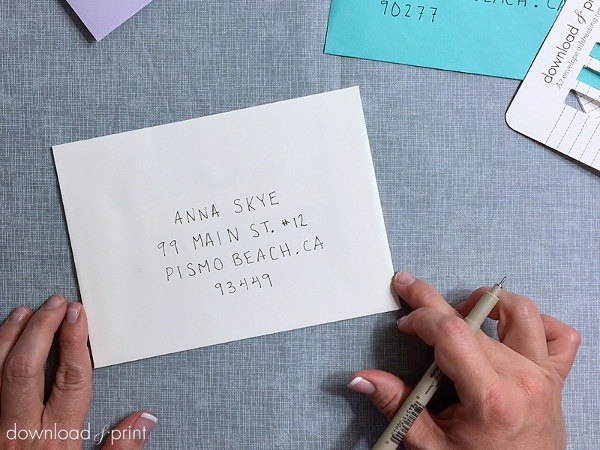 ANNA SKYE
99 MAIN ST. #12
PISMO BEACH. CA
93449
BEACH. CA
90277
download & print
A7 envelope addressing
download & print